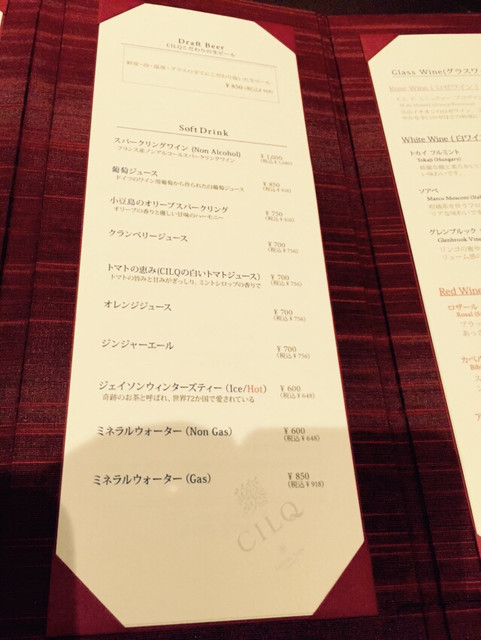 Draft Beer
CILQこだわりの生ビール
¥ 850 (税込¥918)
Soft Drink
スパークリングワイン (Non Alcohol) ¥ 1,000
フランス産ノンアルコールスパークリングワイン (税込¥1,080)
葡萄ジュース ¥ 850
ドイツのワイン用葡萄から作られた白葡萄ジュース (税込¥918)
小豆島のオリーブスパークリング ¥ 750
オリーブの香りと優しい甘味のハーモニー (税込¥810)
クランベリージュース ¥ 700
(税込¥756)
トマトの恵み(CILQの白いトマトジュース) ¥ 700
トマトの旨みと甘みがぎっしり、ミントシロップの香りで (税込¥756)
オレンジジュース ¥ 700
(税込¥756)
ジンジャーエール ¥ 700
(税込¥756)
ジェイソンウィンターズティー (Ice/Hot) ¥ 600
奇跡のお茶と呼ばれ、世界72か国で愛されている (税込¥648)
ミネラルウォーター (Non Gas) ¥ 600
(税込¥648)
ミネラルウォーター (Gas) ¥ 850
(税込¥918)
CILQ
Glass Wine(グラスワ
Rose Wine ( ロゼワイン )
White Wine ( 白ワイ
トカイ フルミント
Tokaji (Hungary)
ソアベ
グレンブルック
Glenbrook Vine
リンゴの香
リューム感の
Red Wine
ロザール
ブラッ
あっさ
カベル